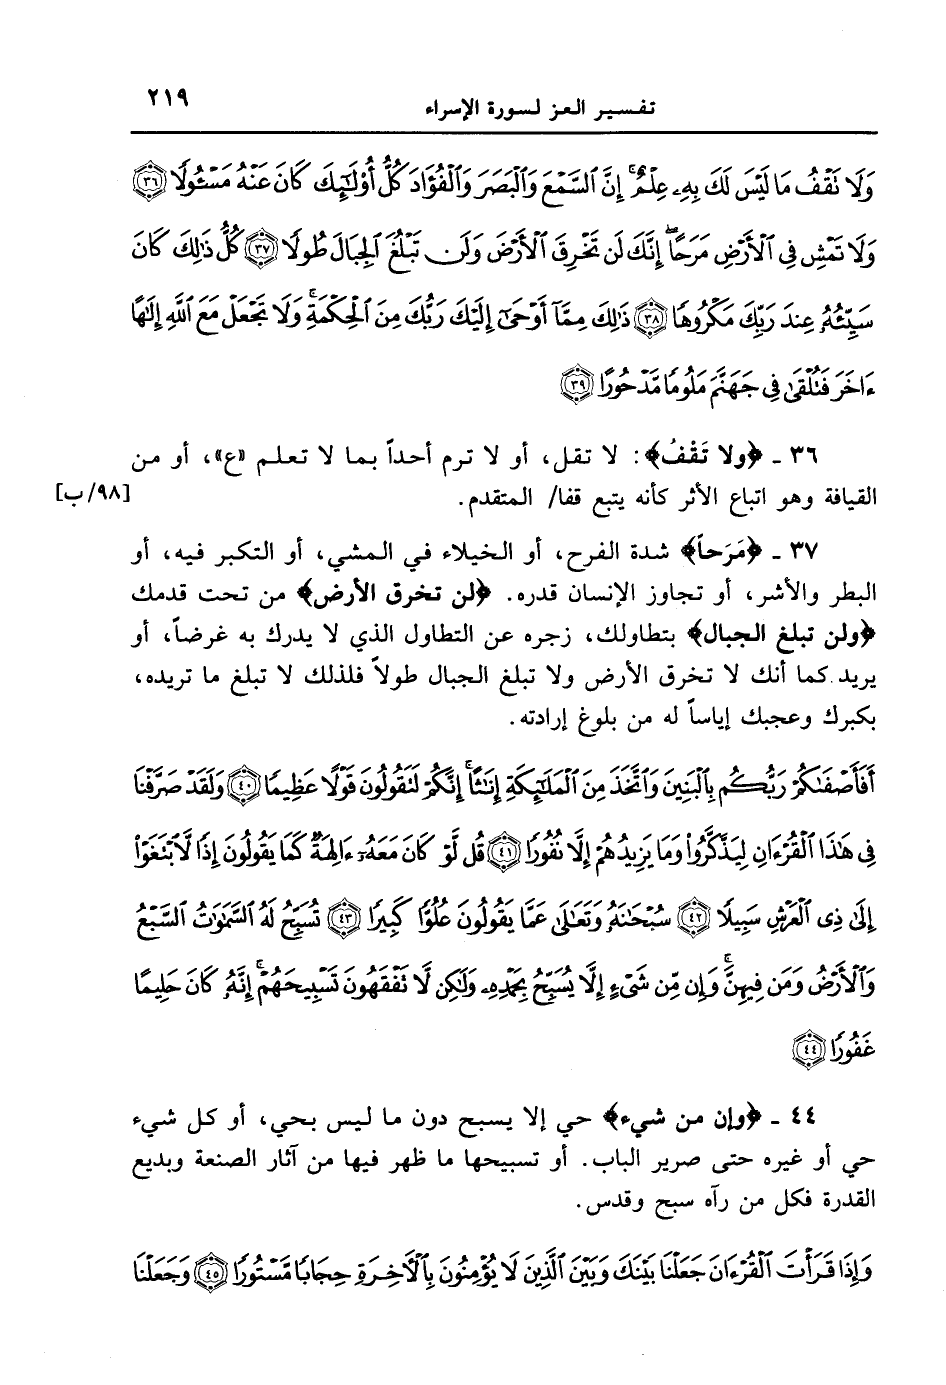 تفسير العز لسورة الإسراء ٢١٩
وَلَا تَقْفُ مَا لَيْسَ لَكَ بِهِۦ عِلْمٌ ۚ إِنَّ ٱلسَّمْعَ وَٱلْبَصَرَ وَٱلْفُؤَادَ كُلُّ أُو۟لَٰٓئِكَ كَانَ عَنْهُ مَسْـُٔولًا ﴿٣٦﴾
وَلَا تَمْشِ فِى ٱلْأَرْضِ مَرَحًا ۖ إِنَّكَ لَن تَخْرِقَ ٱلْأَرْضَ وَلَن تَبْلُغَ ٱلْجِبَالَ طُولًا ﴿٣٧﴾ كُلُّ ذَٰلِكَ كَانَ
سَيِّئُهُۥ عِندَ رَبِّكَ مَكْرُوهًا ﴿٣٨﴾ ذَٰلِكَ مِمَّآ أَوْحَىٰٓ إِلَيْكَ رَبُّكَ مِنَ ٱلْحِكْمَةِ ۗ وَلَا تَجْعَلْ مَعَ ٱللَّهِ إِلَٰهًا
ءَاخَرَ فَتُلْقَىٰ فِى جَهَنَّمَ مَلُومًا مَّدْحُورًا ﴿٣٩﴾
٣٦ ـ ﴿ولا تَقْفُ﴾: لا تقل، أو لا ترم أحداً بما لا تعلم «ع»، أو من
القيافة وهو اتباع الأثر كأنه يتبع قفا/ المتقدم. [٩٨/ب]
٣٧ ـ ﴿مَرَحاً﴾ شدة الفرح، أو الخيلاء في المشي، أو التكبر فيه، أو
البطر والأشر، أو تجاوز الإنسان قدره. ﴿لن تخرق الأرض﴾ من تحت قدمك
﴿ولن تبلغ الجبال﴾ بتطاولك، زجره عن التطاول الذي لا يدرك به غرضاً، أو
يريد كما أنك لا تخرق الأرض ولا تبلغ الجبال طولاً فلذلك لا تبلغ ما تريده،
بكبرك وعجبك إياساً له من بلوغ إرادته.
أَفَأَصْفَىٰكُمْ رَبُّكُم بِٱلْبَنِينَ وَٱتَّخَذَ مِنَ ٱلْمَلَٰٓئِكَةِ إِنَٰثًا ۚ إِنَّكُمْ لَتَقُولُونَ قَوْلًا عَظِيمًا ﴿٤٠﴾ وَلَقَدْ صَرَّفْنَا
فِى هَٰذَا ٱلْقُرْءَانِ لِيَذَّكَّرُوا۟ وَمَا يَزِيدُهُمْ إِلَّا نُفُورًا ﴿٤١﴾ قُل لَّوْ كَانَ مَعَهُۥٓ ءَالِهَةٌ كَمَا يَقُولُونَ إِذًا لَّٱبْتَغَوْا۟
إِلَىٰ ذِى ٱلْعَرْشِ سَبِيلًا ﴿٤٢﴾ سُبْحَٰنَهُۥ وَتَعَٰلَىٰ عَمَّا يَقُولُونَ عُلُوًّا كَبِيرًا ﴿٤٣﴾ تُسَبِّحُ لَهُ ٱلسَّمَٰوَٰتُ ٱلسَّبْعُ
وَٱلْأَرْضُ وَمَن فِيهِنَّ ۚ وَإِن مِّن شَىْءٍ إِلَّا يُسَبِّحُ بِحَمْدِهِۦ وَلَٰكِن لَّا تَفْقَهُونَ تَسْبِيحَهُمْ ۗ إِنَّهُۥ كَانَ حَلِيمًا
غَفُورًا ﴿٤٤﴾
٤٤ ـ ﴿وإن من شيء﴾ حي إلا يسبح دون ما ليس بحي، أو كل شيء
حي أو غيره حتى صرير الباب. أو تسبيحها ما ظهر فيها من آثار الصنعة وبديع
القدرة فكل من رآه سبح وقدس.
وَإِذَا قَرَأْتَ ٱلْقُرْءَانَ جَعَلْنَا بَيْنَكَ وَبَيْنَ ٱلَّذِينَ لَا يُؤْمِنُونَ بِٱلْأَخِرَةِ حِجَابًا مَّسْتُورًا ﴿٤٥﴾ وَجَعَلْنَا